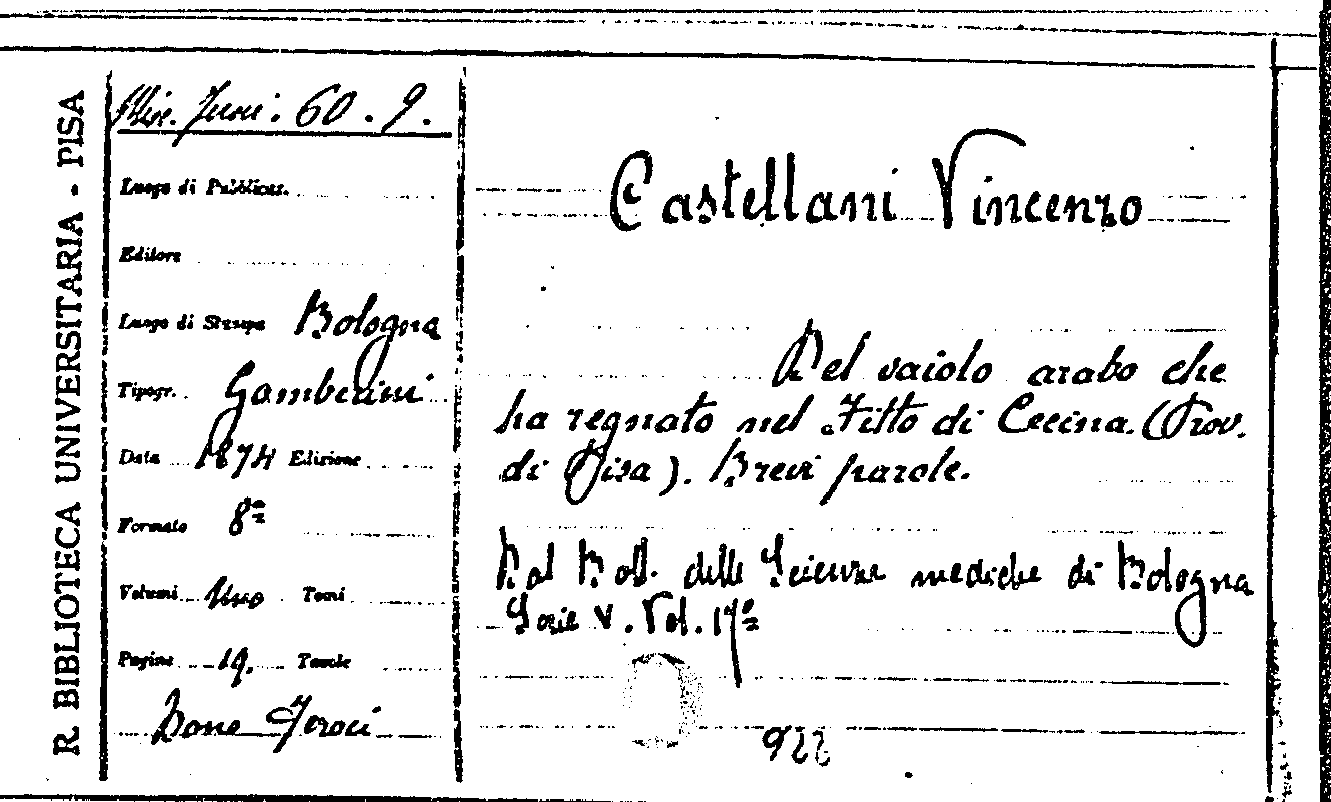 R. BIBLIOTECA UNIVERSITARIA - PISA
Misc. Feroci. 60. 9.
Luogo di Pubblicaz.
Editore
Luogo di Stampa Bologna
Tipogr. Gamberini
Data 1874 Edizione
Formato 8º
Volumi Uno Tomi
Pagine 19. Tavole
Dono Feroci
Castellani Vincenzo
Del vaiolo arabo che
ha regnato nel Fitto di Cecina. (Prov.
di Pisa). Brevi parole.
Dal Boll. delle Scienze mediche di Bologna
Serie V. Vol. 17º
922